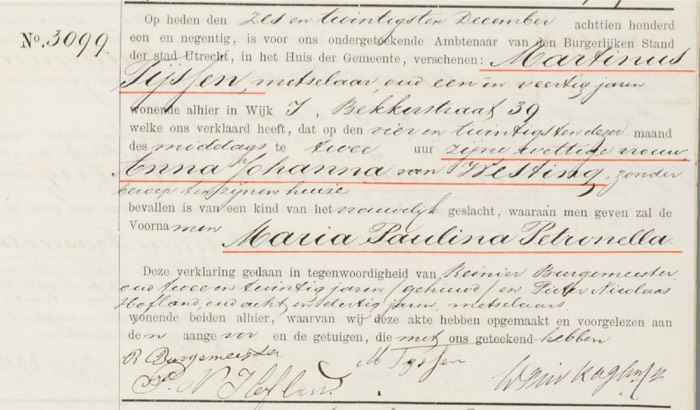 Op heden den zes en twintigsten December achttien honderd
No. 3099.
een en negentig, is voor ons ondergeteekende Ambtenaar van den Burgerlijken Stand
der stad Utrecht, in het Huis der Gemeente, verschenen: Martinus
Tijssen, metselaar, oud een en veertig jaren
wonende alhier in Wijk I, Bekkerstraat 39
welke ons verklaard heeft, dat op den vier en twintigsten dezer maand
des middags te twee uur zijne wettige vrouw
Anna Johanna van Westing, zonder
beroep ten zijnen huize
bevallen is van een kind van het vrouwelijk geslacht, waaraan men geven zal de
Voornamen
Maria Paulina Petronella.
Deze verklaring gedaan in tegenwoordigheid van Reinier Burgemeester,
oud twee en twintig jaren, gehuwd en Pieter Nicolaas
Hofland, oud acht en dertig jaren, metselaars
wonende beiden alhier, waarvan wij deze akte hebben opgemaakt en voorgelezen aan
den aangever en de getuigen, die met ons geteekend hebben
R Burgemeester M Tyssen
P. N Hofland